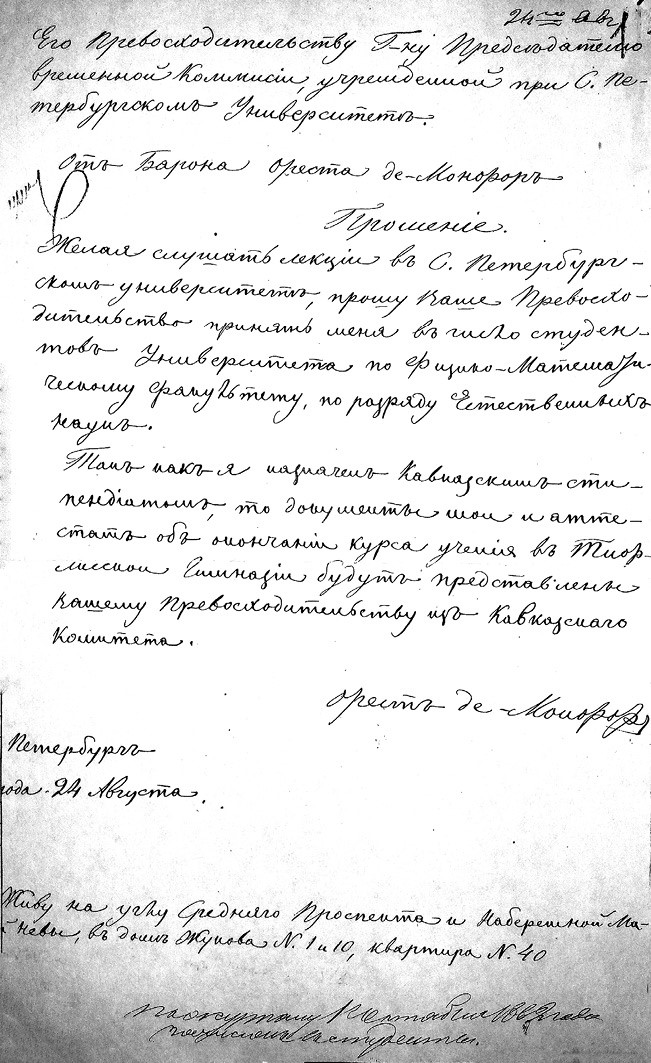 24го Авг
Его Превосходительству Г-ну Предсѣдателю
временной Коммисіи, учрежденной при С. Пе-
тербургскомъ Университетѣ.
Отъ Барона Ореста де-Монфоръ
Прошеніе.
Желая слушать лекціи въ С. Петербург-
скомъ университетѣ, прошу Ваше Превосхо-
дительство принять меня въ число студен-
товъ Университета по Физико-Математи-
ческому факультету, по разряду Естественныхъ
наукъ.
Такъ какъ я назначенъ Кавказскимъ сти-
пендіатомъ, то документы мои и атте-
статъ объ окончаніи курса ученія въ Тиф-
лисской Гимназіи будутъ представлены
Вашему Превосходительству изъ Кавказскаго
Комитета.
Орестъ де-Монфоръ
Петербургъ
года. 24 Августа.
Живу на углу Средняго Проспекта и Набережной Ма-
й Невы, въ домѣ Жукова N. 1 и 10, квартира N. 40
года
студенты.